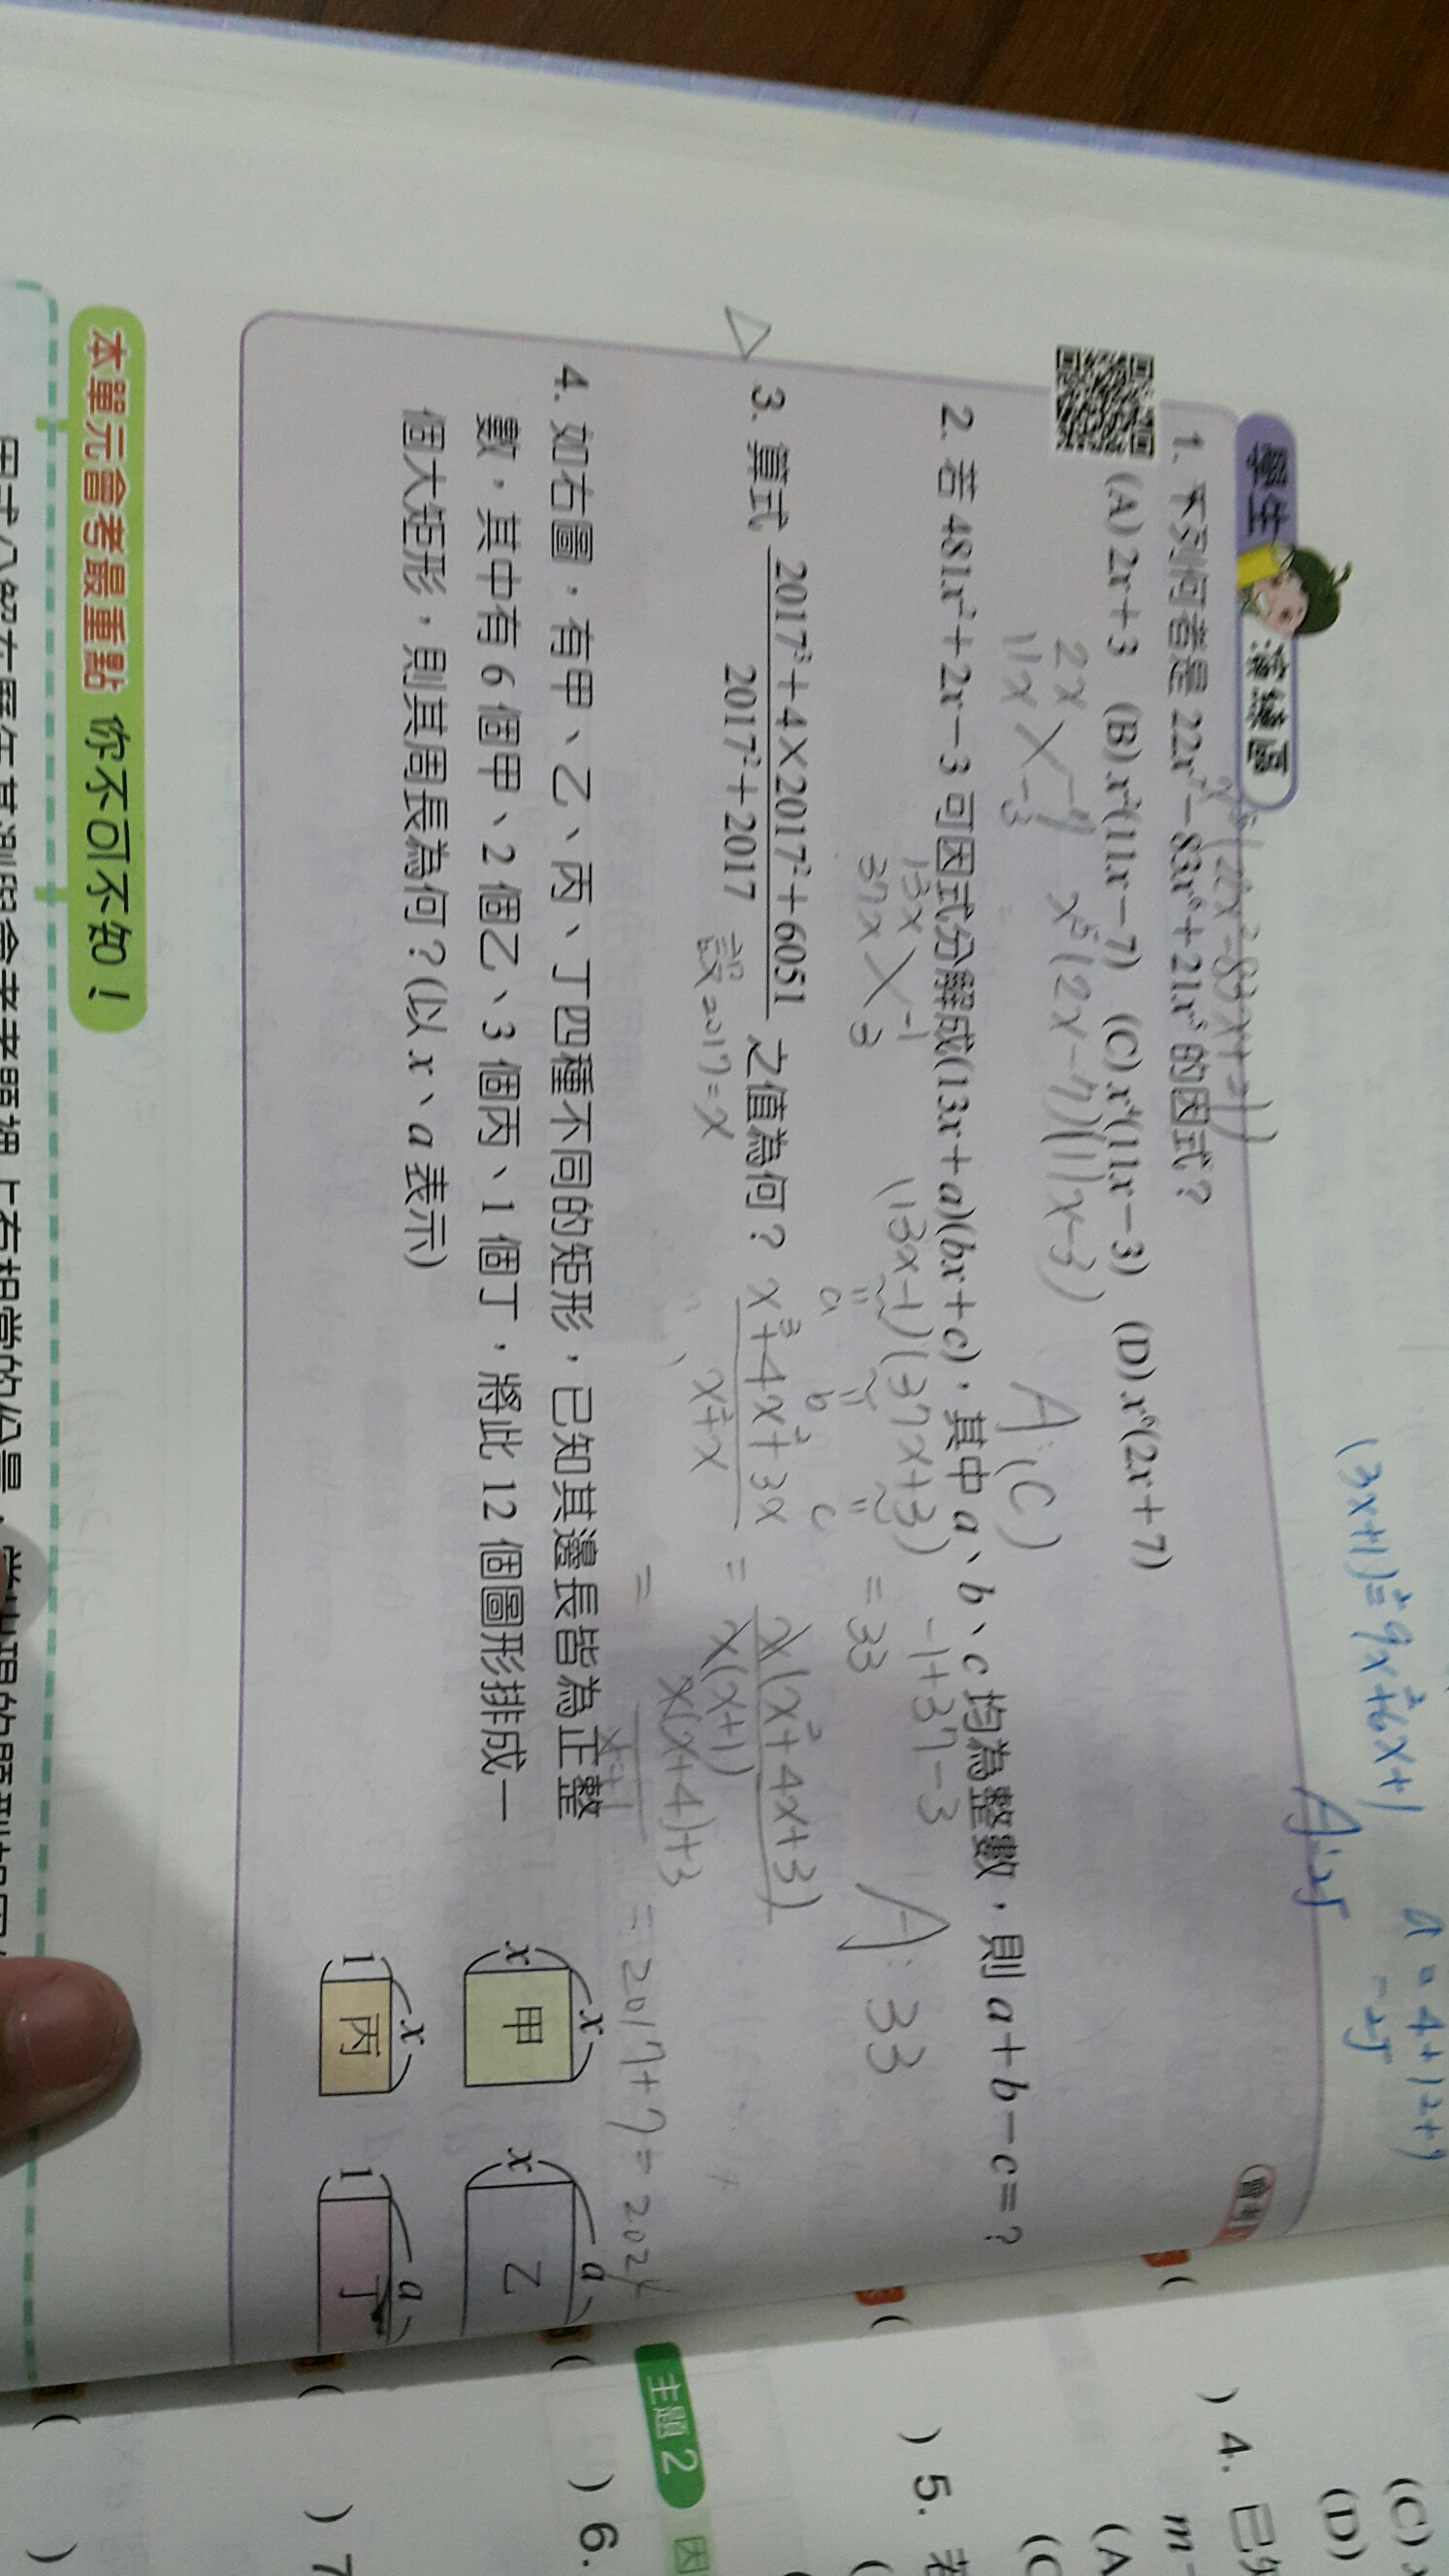 (3x+1)²=9x²+6x+1
a=4+12+9
A:25
-25
學生 演練區
會考
1. 下列何者是 22x⁷-83x⁶+21x⁵ 的因式?
(A) 2x+3 (B) x²(11x-7) (C) x⁴(11x-3) (D) x⁶(2x+7)
x⁵(22x²-83x+21)
2x -7
11x -3
x⁵(2x-7)(11x-3)
A:(C)
2. 若 481x²+2x-3 可因式分解成(13x+a)(bx+c),其中 a、b、c 均為整數,則 a+b-c=?
13x -1
37x 3
(13x-1)(37x+3)
a b c
-1+37-3
=33
A:33
3. 算式 2017³+4×2017²+6051 之值為何?
2017²+2017
設2017=x
x³+4x²+3x = x(x²+4x+3)
x²+x x(x+1)
= x(x+4)+3 =2017+7=2024
x+1
4. 如右圖,有甲、乙、丙、丁四種不同的矩形,已知其邊長皆為正整
數,其中有 6 個甲、2 個乙、3 個丙、1 個丁,將此 12 個圖形排成一
個大矩形,則其周長為何?(以 x、a 表示)
x x 甲
x a 乙
1 x 丙
1 a 丁
本單元會考最重點 你不可不知!
主題 2 因
) 4. 已
) 5. 若
) 6.
) 7
(C)
(D)
m
(A
(C